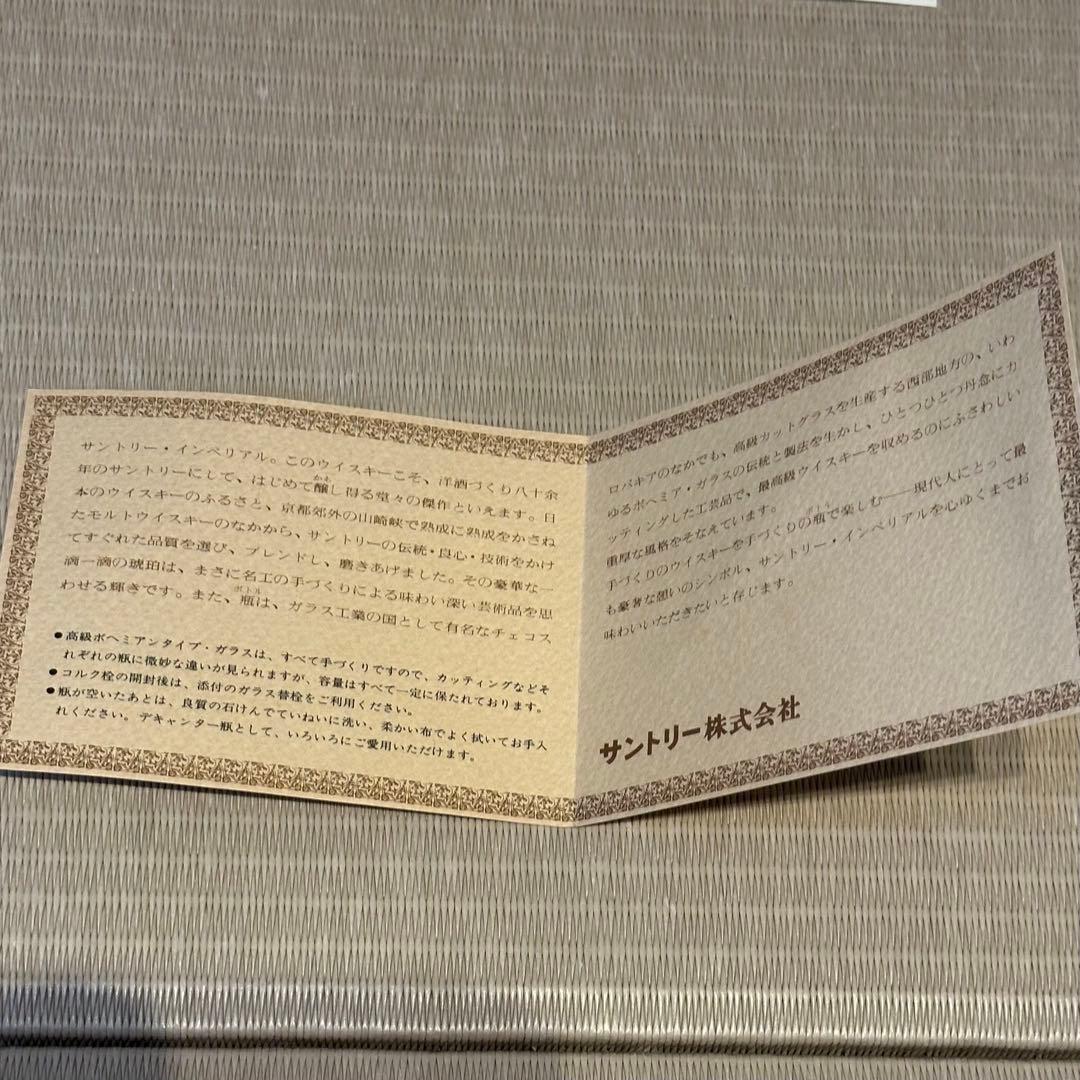 サントリー・インペリアル。このウイスキーこそ、洋酒づくり八十余
年のサントリーにして、はじめて醸し得る堂々の傑作といえます。日
本のウイスキーのふるさと、京都郊外の山崎峡で熟成に熟成をかさね
たモルトウイスキーのなかから、サントリーの伝統・良心・技術をかけ
てすぐれた品質を選び、ブレンドし、磨きあげました。その豪華な一
滴一滴の琥珀は、まさに名工の手づくりによる味わい深い芸術品を思
わせる輝きです。また、瓶は、ガラス工業の国として有名なチェコス
●高級ボヘミアンタイプ・ガラスは、すべて手づくりですので、カッティングなどそ
れぞれの瓶に微妙な違いが見られますが、容量はすべて一定に保たれております。
●コルク栓の開封後は、添付のガラス替栓をご利用ください。
●瓶が空いたあとは、良質の石けんでていねいに洗い、柔かい布でよく拭いてお手入
れください。デキャンター瓶として、いろいろにご愛用いただけます。
ロバキアのなかでも、高級カットグラスを生産する西部地方の、いわ
ゆるボヘミア・ガラスの伝統と製法を生かし、ひとつひとつ丹念にカ
ッティングした工芸品で、最高級ウイスキーを収めるのにふさわしい
重厚な風格をそなえています。
手づくりのウイスキーを手づくりの瓶で楽しむ──現代人にとって最
も豪奢な憩いのシンボル、サントリー・インペリアルを心ゆくまでお
味わいいただきたいと存じます。
サントリー株式会社